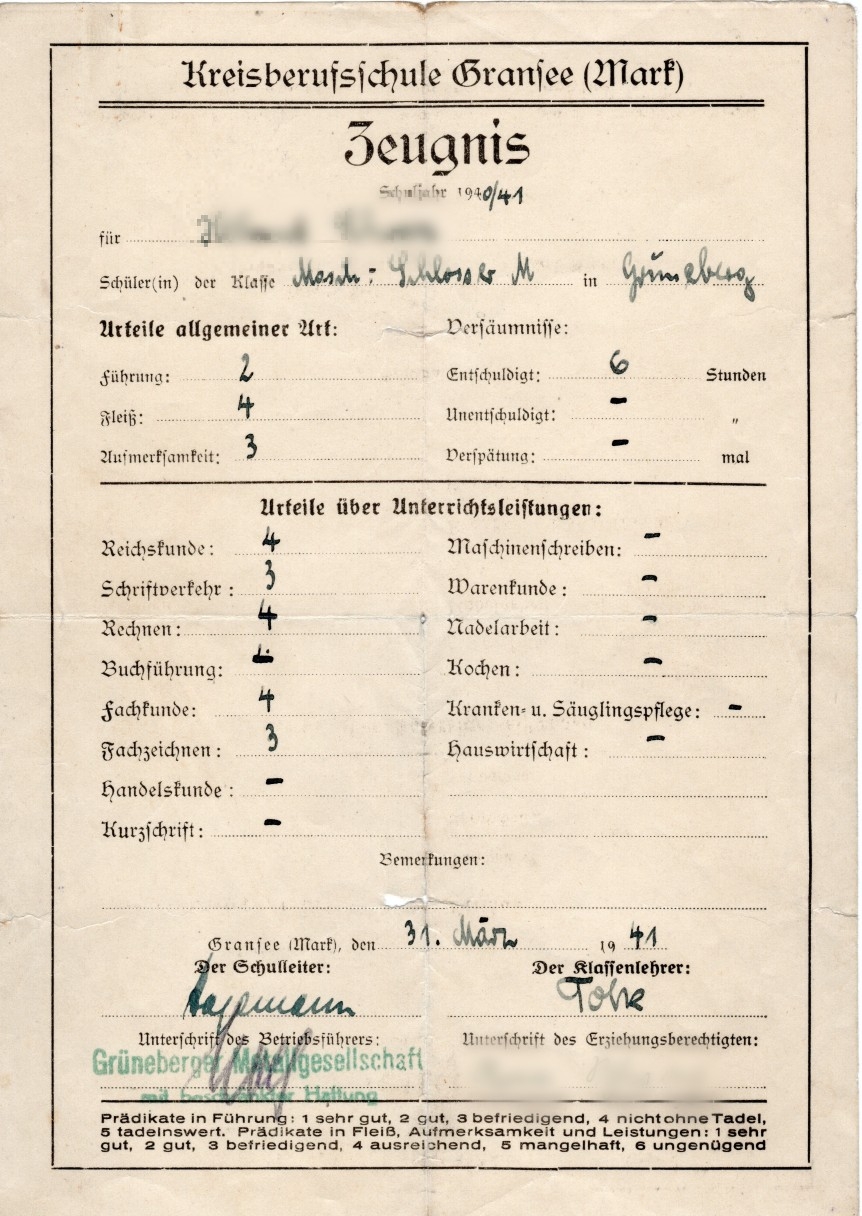 Kreisberufsschule Gransee (Mark)
Zeugnis
Schuljahr 1940/41
für
Schüler(in) der Klasse Masch: Schlosser M in Grüneberg
Urteile allgemeiner Art: Versäumnisse:
Führung: 2 Entschuldigt: 6 Stunden
Fleiß: 4 Unentschuldigt: - „
Aufmerksamkeit: 3 Verspätung: - mal
Urteile über Unterrichtsleistungen:
Reichskunde: 4 Maschinenschreiben: -
Schriftverkehr: 3 Warenkunde: -
Rechnen: 4 Nadelarbeit: -
Buchführung: - Kochen: -
Fachkunde: 4 Kranken- u. Säuglingspflege: -
Fachzeichnen: 3 Hauswirtschaft: -
Handelskunde: -
Kurzschrift: -
Bemerkungen:
Gransee (Mark), den 31. März 1941
Der Schulleiter: Der Klassenlehrer:
Unterschrift des Betriebsführers: Unterschrift des Erziehungsberechtigten:
Grüneberger Metallgesellschaft
mit beschränkter Haftung
Prädikate in Führung: 1 sehr gut, 2 gut, 3 befriedigend, 4 nicht ohne Tadel,
5 tadelnswert. Prädikate in Fleiß, Aufmerksamkeit und Leistungen: 1 sehr
gut, 2 gut, 3 befriedigend, 4 ausreichend, 5 mangelhaft, 6 ungenügend